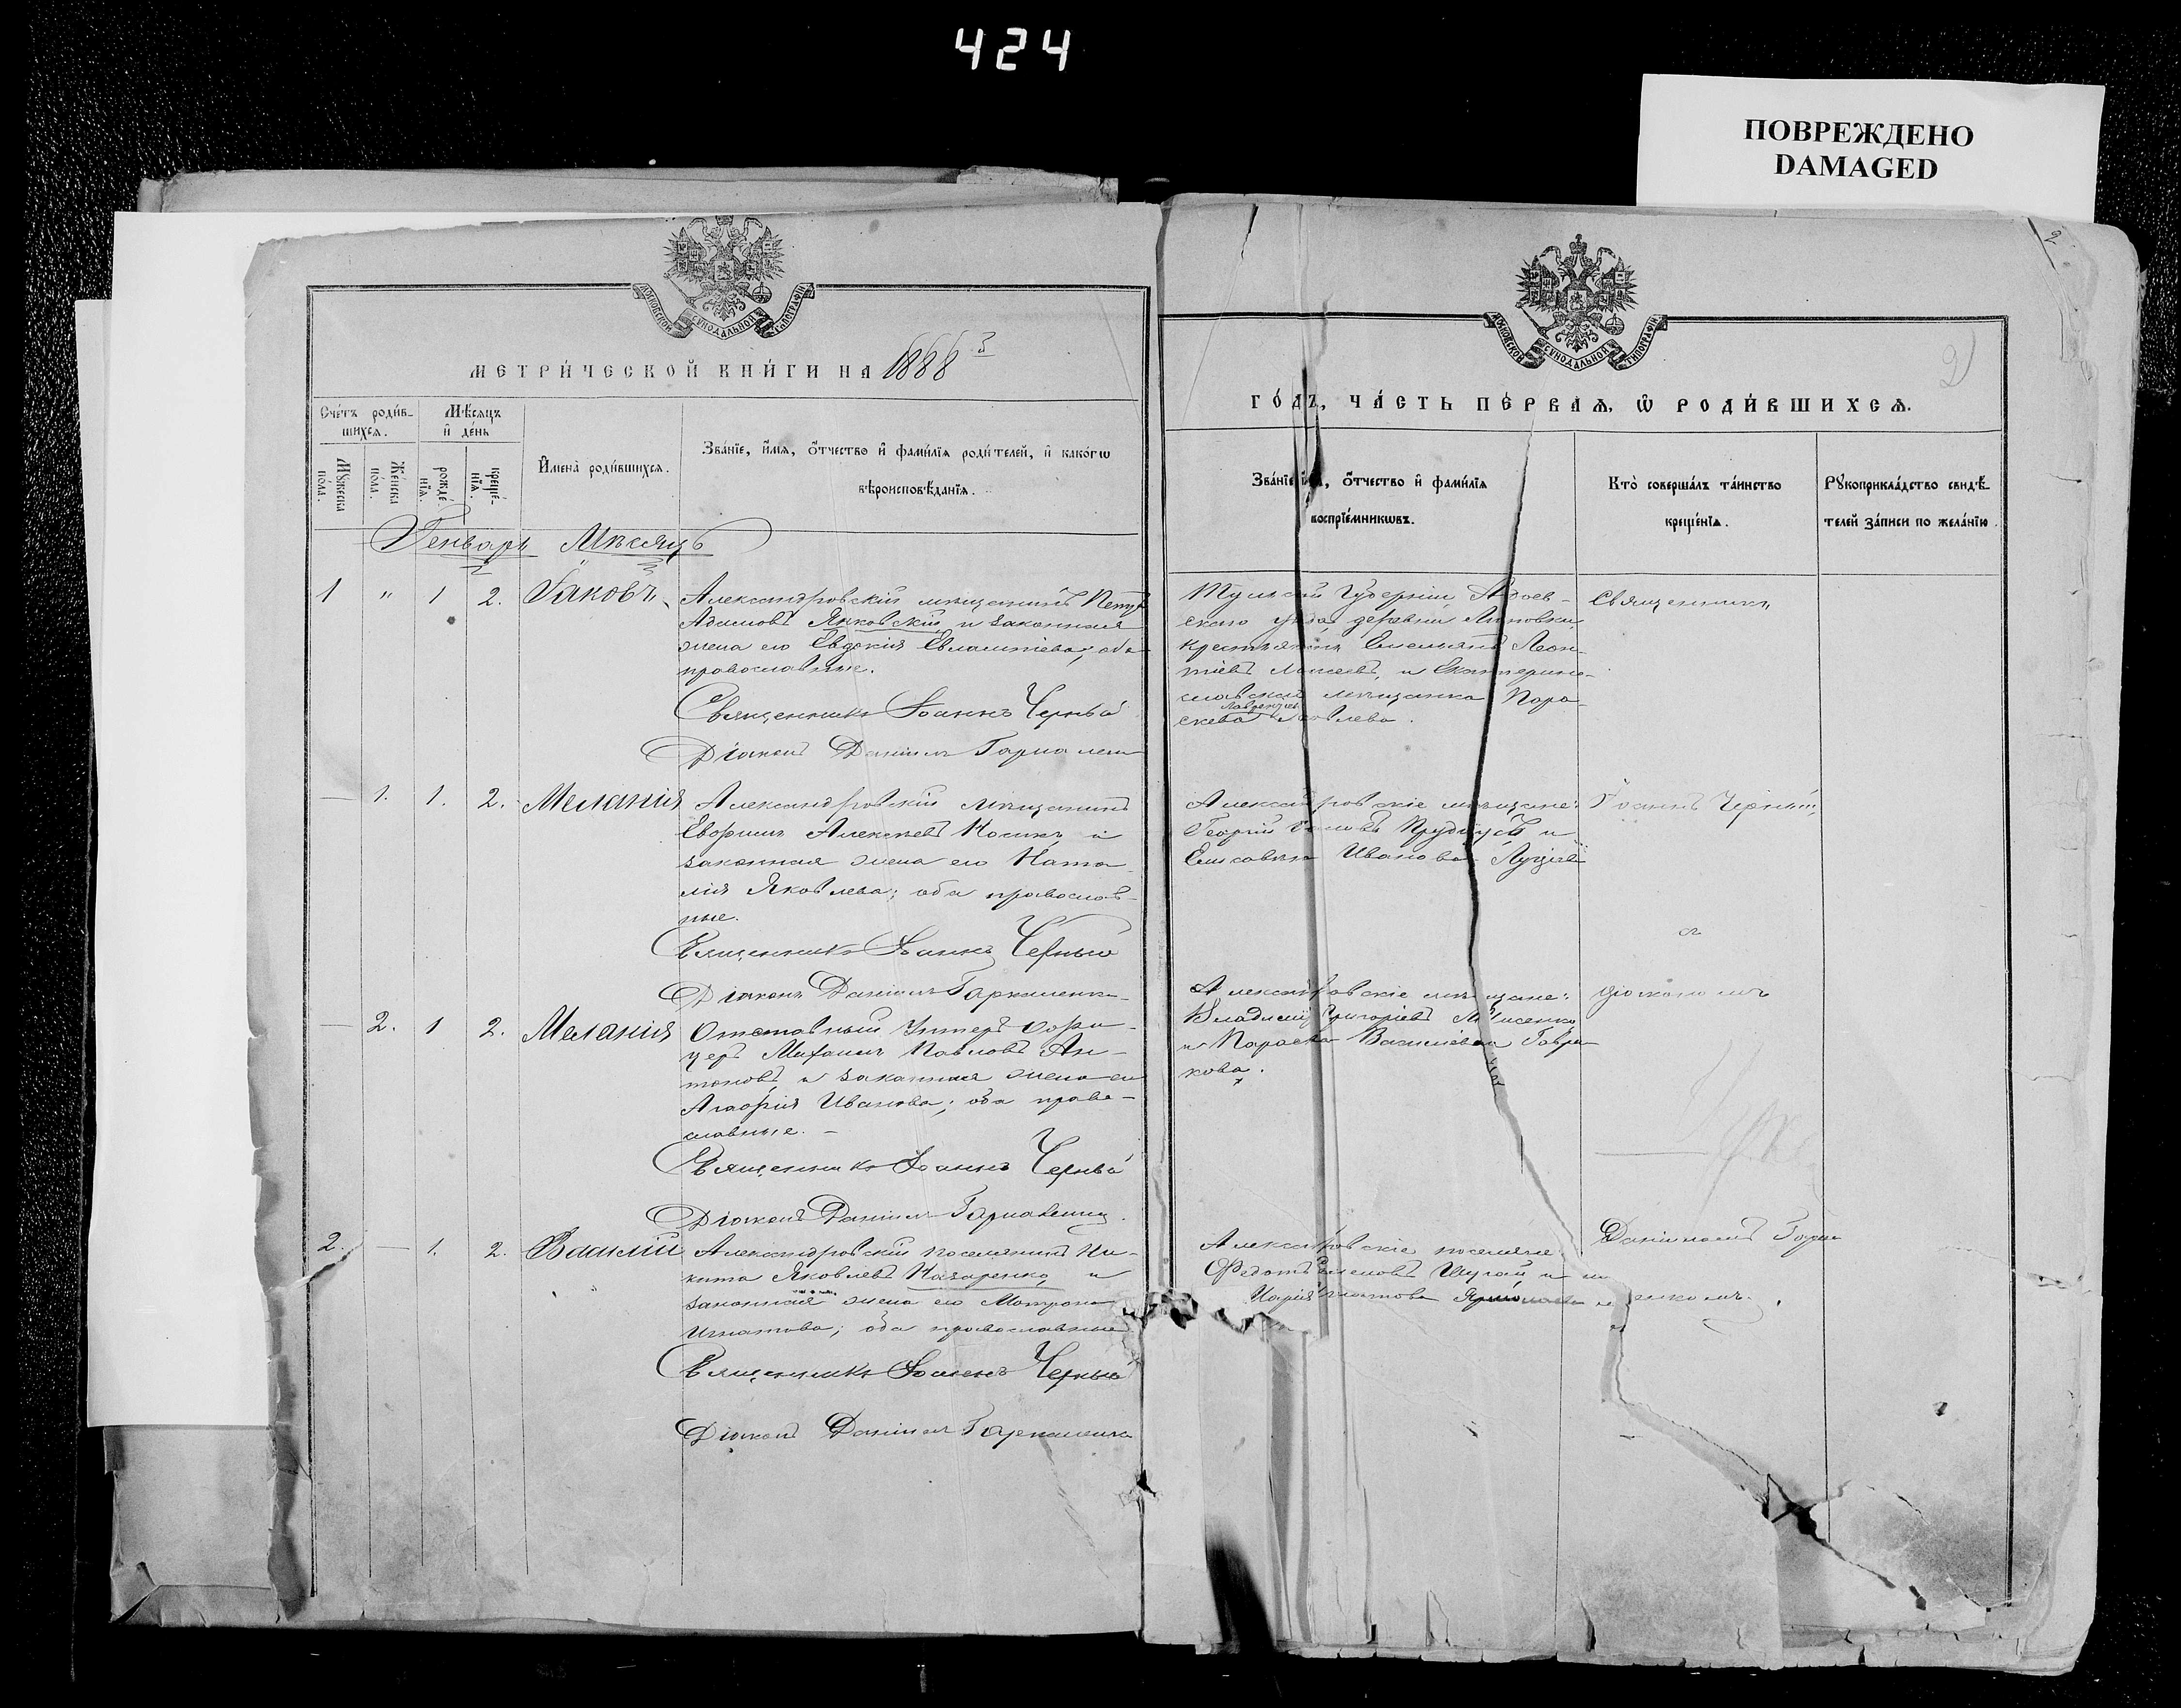 424
ПОВРЕЖДЕНО
DAMAGED
2
МОСКОВСКОЙ СѴНОДАЛЬНОЙ ТИПОГРАФІИ
МЕТРИ́ЧЕСКОЙ КНИ́ГИ НА 1888 й
Сче́тъ роди́в-
шихсѧ.
Мѣ́сѧцъ
и҆ де́нь
Мꙋ́жеска
по́ла.
Же́нска
по́ла.
рожде́-
нїѧ.
креще́-
нїѧ.
И҆мена̀ роди́вшихсѧ.
Зва́нїе, и҆́мѧ, ѻ҆́тчество и҆ фами́лїѧ роди́телей, и҆ како́гѡ
вѣроисповѣ́данїѧ.
Генварь Мѣсяцъ
1 " 1 2. Іаковъ
Александровскій мѣщанинъ Петръ
Адамовъ Янковскій и законная
жена его Евдокія Евлампіева; оба
православные.
Священникъ Іоаннъ Черный
Діаконъ Даніилъ
— 1. 1. 2. Меланія
Александровскій мѣщанинъ
Алексѣевъ Носикъ и
законная жена его Ната-
лія Яковлева; оба православ-
ные.
Священникъ Іоаннъ Черный
Діаконъ Даніилъ
— 2. 1 2. Меланія
Отставный Унтеръ офи-
церъ Михаилъ Павловъ Ан-
тоновъ и законная жена его
Агафія Иванова; оба право-
славные. —
Священникъ Іоаннъ Черный
Діаконъ Даніилъ
2. — 1. 2. Василій
Александровскій поселянинъ Ни-
кита Яковлевъ Назаренко и
законная жена его Матрона
Игнатова; оба православные
Священникъ Іоаннъ Черный
Діаконъ Даніилъ
МОСКОВСКОЙ СѴНОДАЛЬНОЙ ТИПОГРАФІИ
2
ГО́ДЪ, ЧА́СТЬ ПЕ́РВАѦ, Ѡ҆ РОДИ́ВШИХСѦ.
Зва́нїе, ѻ҆́тчество и҆ фами́лїѧ
воспрїе́мникѡвъ.
Кто̀ соверша́лъ та́инство
креще́нїѧ.
Рꙋкоприкла́дство свидѣ́-
телей за́писи по жела́нїю.
Тульской Губерніи Одоев-
скаго уѣзда деревни
крестьянинъ Емельянъ Леон-
тіевъ и Екатерино-
славская мѣщанка Пара-
скева
Священникъ
Александровскіе мѣщане:
Георгій и
Елисавета Иванова
Іоаннъ Черный
съ
Александровскіе мѣщане:
Владимір Григоріевъ
и Параскева Василіева Гаври-
кова.
діакономъ
Александровскіе поселяне:
Федотъ и
Марія
Даніиломъ